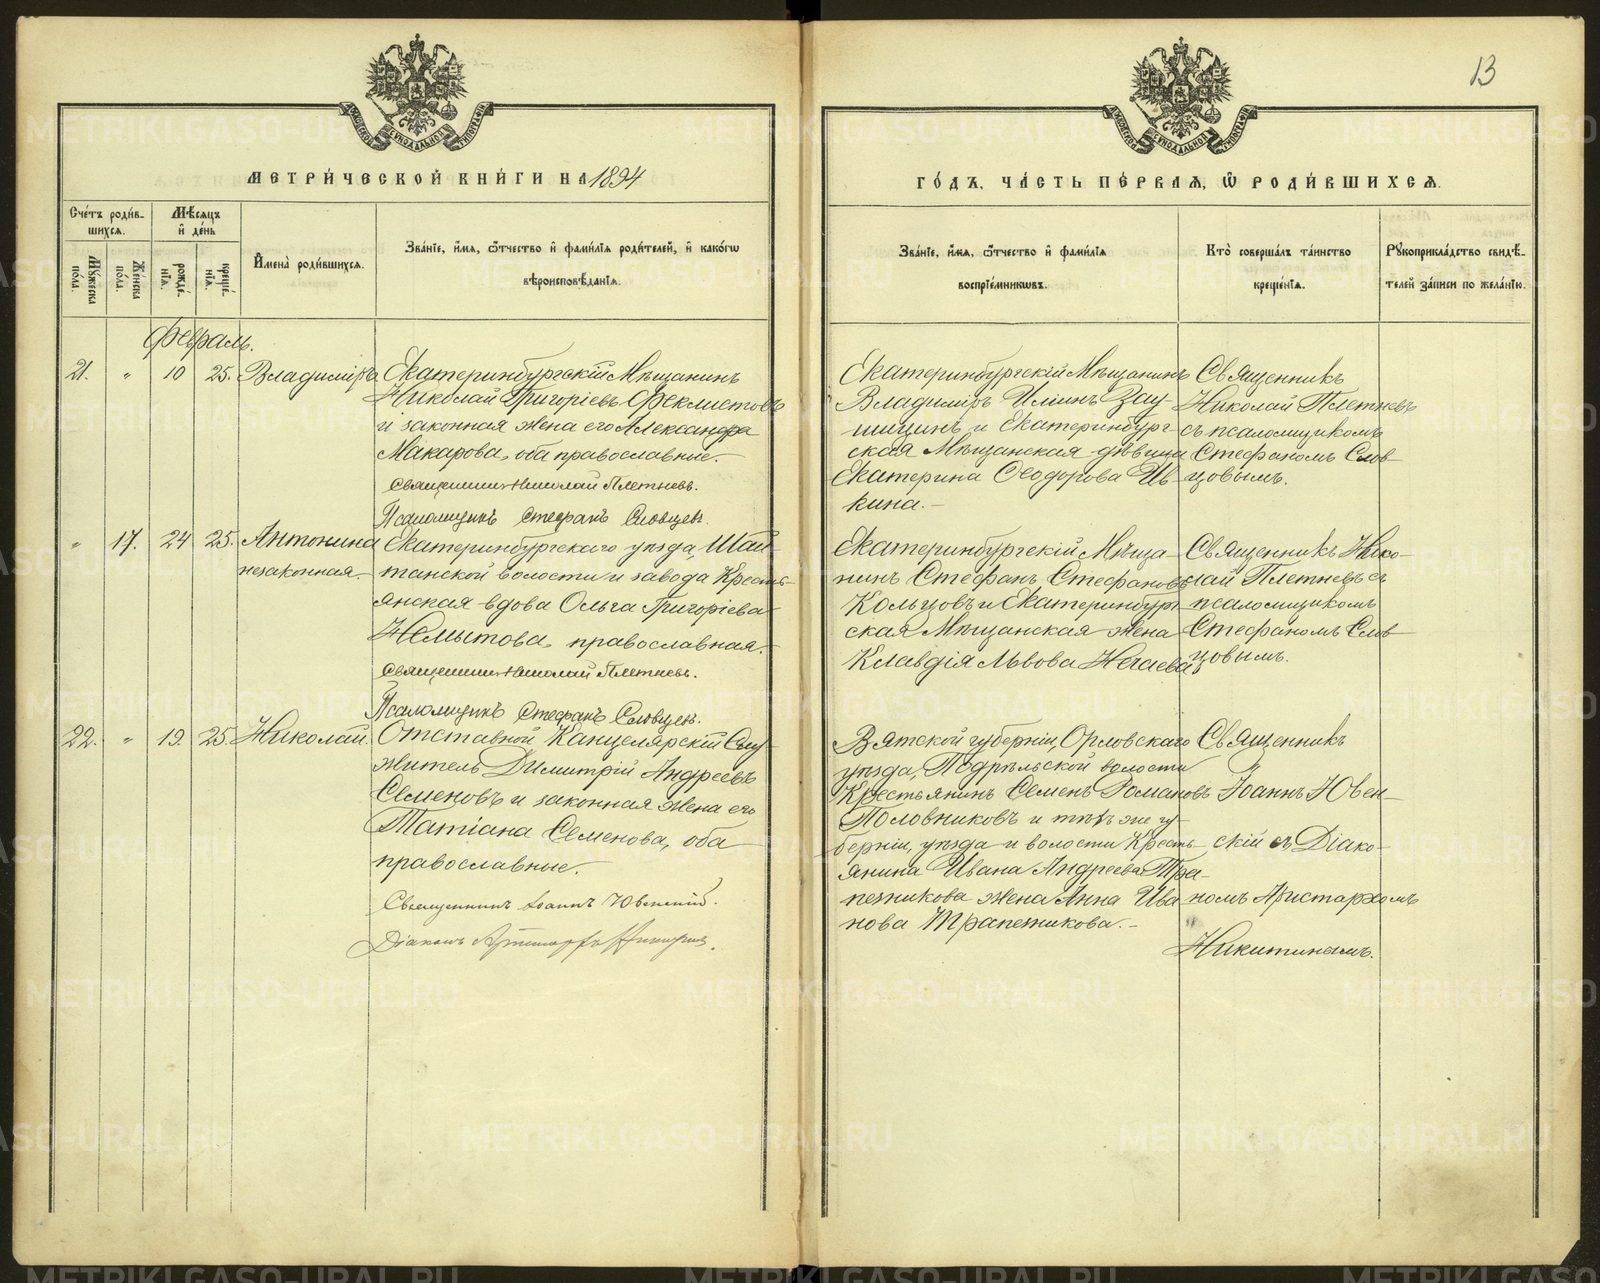 13
МЕТРИЧЕСКОЙ КНИГИ НА 1894
ГОДЪ, ЧАСТЬ ПЕРВАЯ, Ѡ РОДИВШИХСЯ.
Счетъ родив-
шихся.
Мѣсяцъ
и день
Мужеска
пола.
Женска
пола.
рожде-
нія.
креще-
нія.
Имена родившихся.
Званіе, имя, ѿчество и фамилія родителей, и какогѡ
вѣроисповѣданія.
Званіе, имя, ѿчество и фамилія
воспріемникѡвъ.
Кто совершалъ таинство
крещенія.
Рукоприкладство свидѣ-
телей записи по желанію.
Февраль.
21. " 10 25. Владиміръ
Екатеринбургскій Мѣщанинъ
Николай Григоріевъ Феклистовъ
и законная жена его Александра
Макарова, оба православные.
Священникъ Николай Плетневъ.
Псаломщикъ Стефанъ Словцовъ.
Екатеринбургскій Мѣщанинъ
Владиміръ Илiинъ Зау-
шицинъ и Екатеринбург-
ская Мѣщанская дѣвица
Екатерина Ѳеодорова Ив-
кина.-
Священникъ
Николай Плетневъ
съ псаломщикомъ
Стефаномъ Слов-
цовымъ.
" 17. 24 25. Антонина
незаконная.
Екатеринбургскаго уѣзда, Шай-
танской волости и завода Кресть-
янская вдова Ольга Григоріева
Немытова, православная.
Священникъ Николай Плетневъ.
Псаломщикъ Стефанъ Словцовъ.
Екатеринбургскій Мѣща-
нинъ Стефанъ Стефановъ
Кольцовъ и Екатеринбург-
ская Мѣщанская жена
Клавдія Львова Нечаева
Священникъ Нико-
лай Плетневъ съ
псаломщикомъ
Стефаномъ Слов-
цовымъ.
22. " 19 25. Николай.
Отставной Канцелярскій Слу-
житель Димитрій Андреевъ
Семеновъ и законная жена его
Татіана Семенова, оба
православные.
Священникъ Іоаннъ Ювенскій.
Діаконъ Аристархъ Никитинъ.
Вятской губерніи, Орловскаго
уѣзда, Подрѣльской волости
Крестьянинъ Семенъ Романовъ
Половниковъ и тѣхъ же гу-
берніи, уѣзда и волости Кресть-
янина Ивана Андреева Тра-
пезникова жена Анна Ива-
нова Трапезникова.-
Священникъ
Іоаннъ Ювен-
скій съ Діако-
номъ Аристархомъ
Никитинымъ.
METRIKI.GASO-URAL.RU